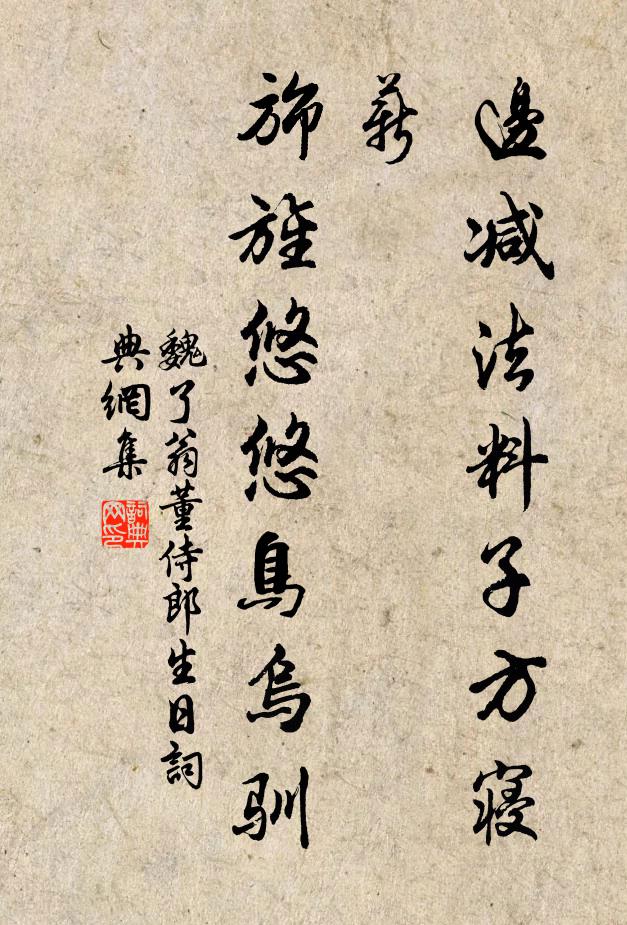 邊减法料子方寢
薪
旆旌悠悠鳥烏馴
魏了翁董侍郎生日詞
典網集
詞典
网印